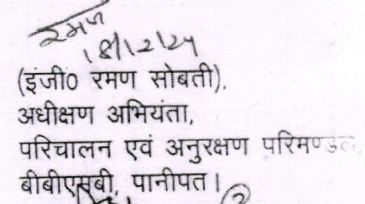 रमण
18/12/24
(इंजी0 रमण सोबती),
अधीक्षण अभियंता,
परिचालन एवं अनुरक्षण परिमण्डल,
बीबीएमबी, पानीपत।